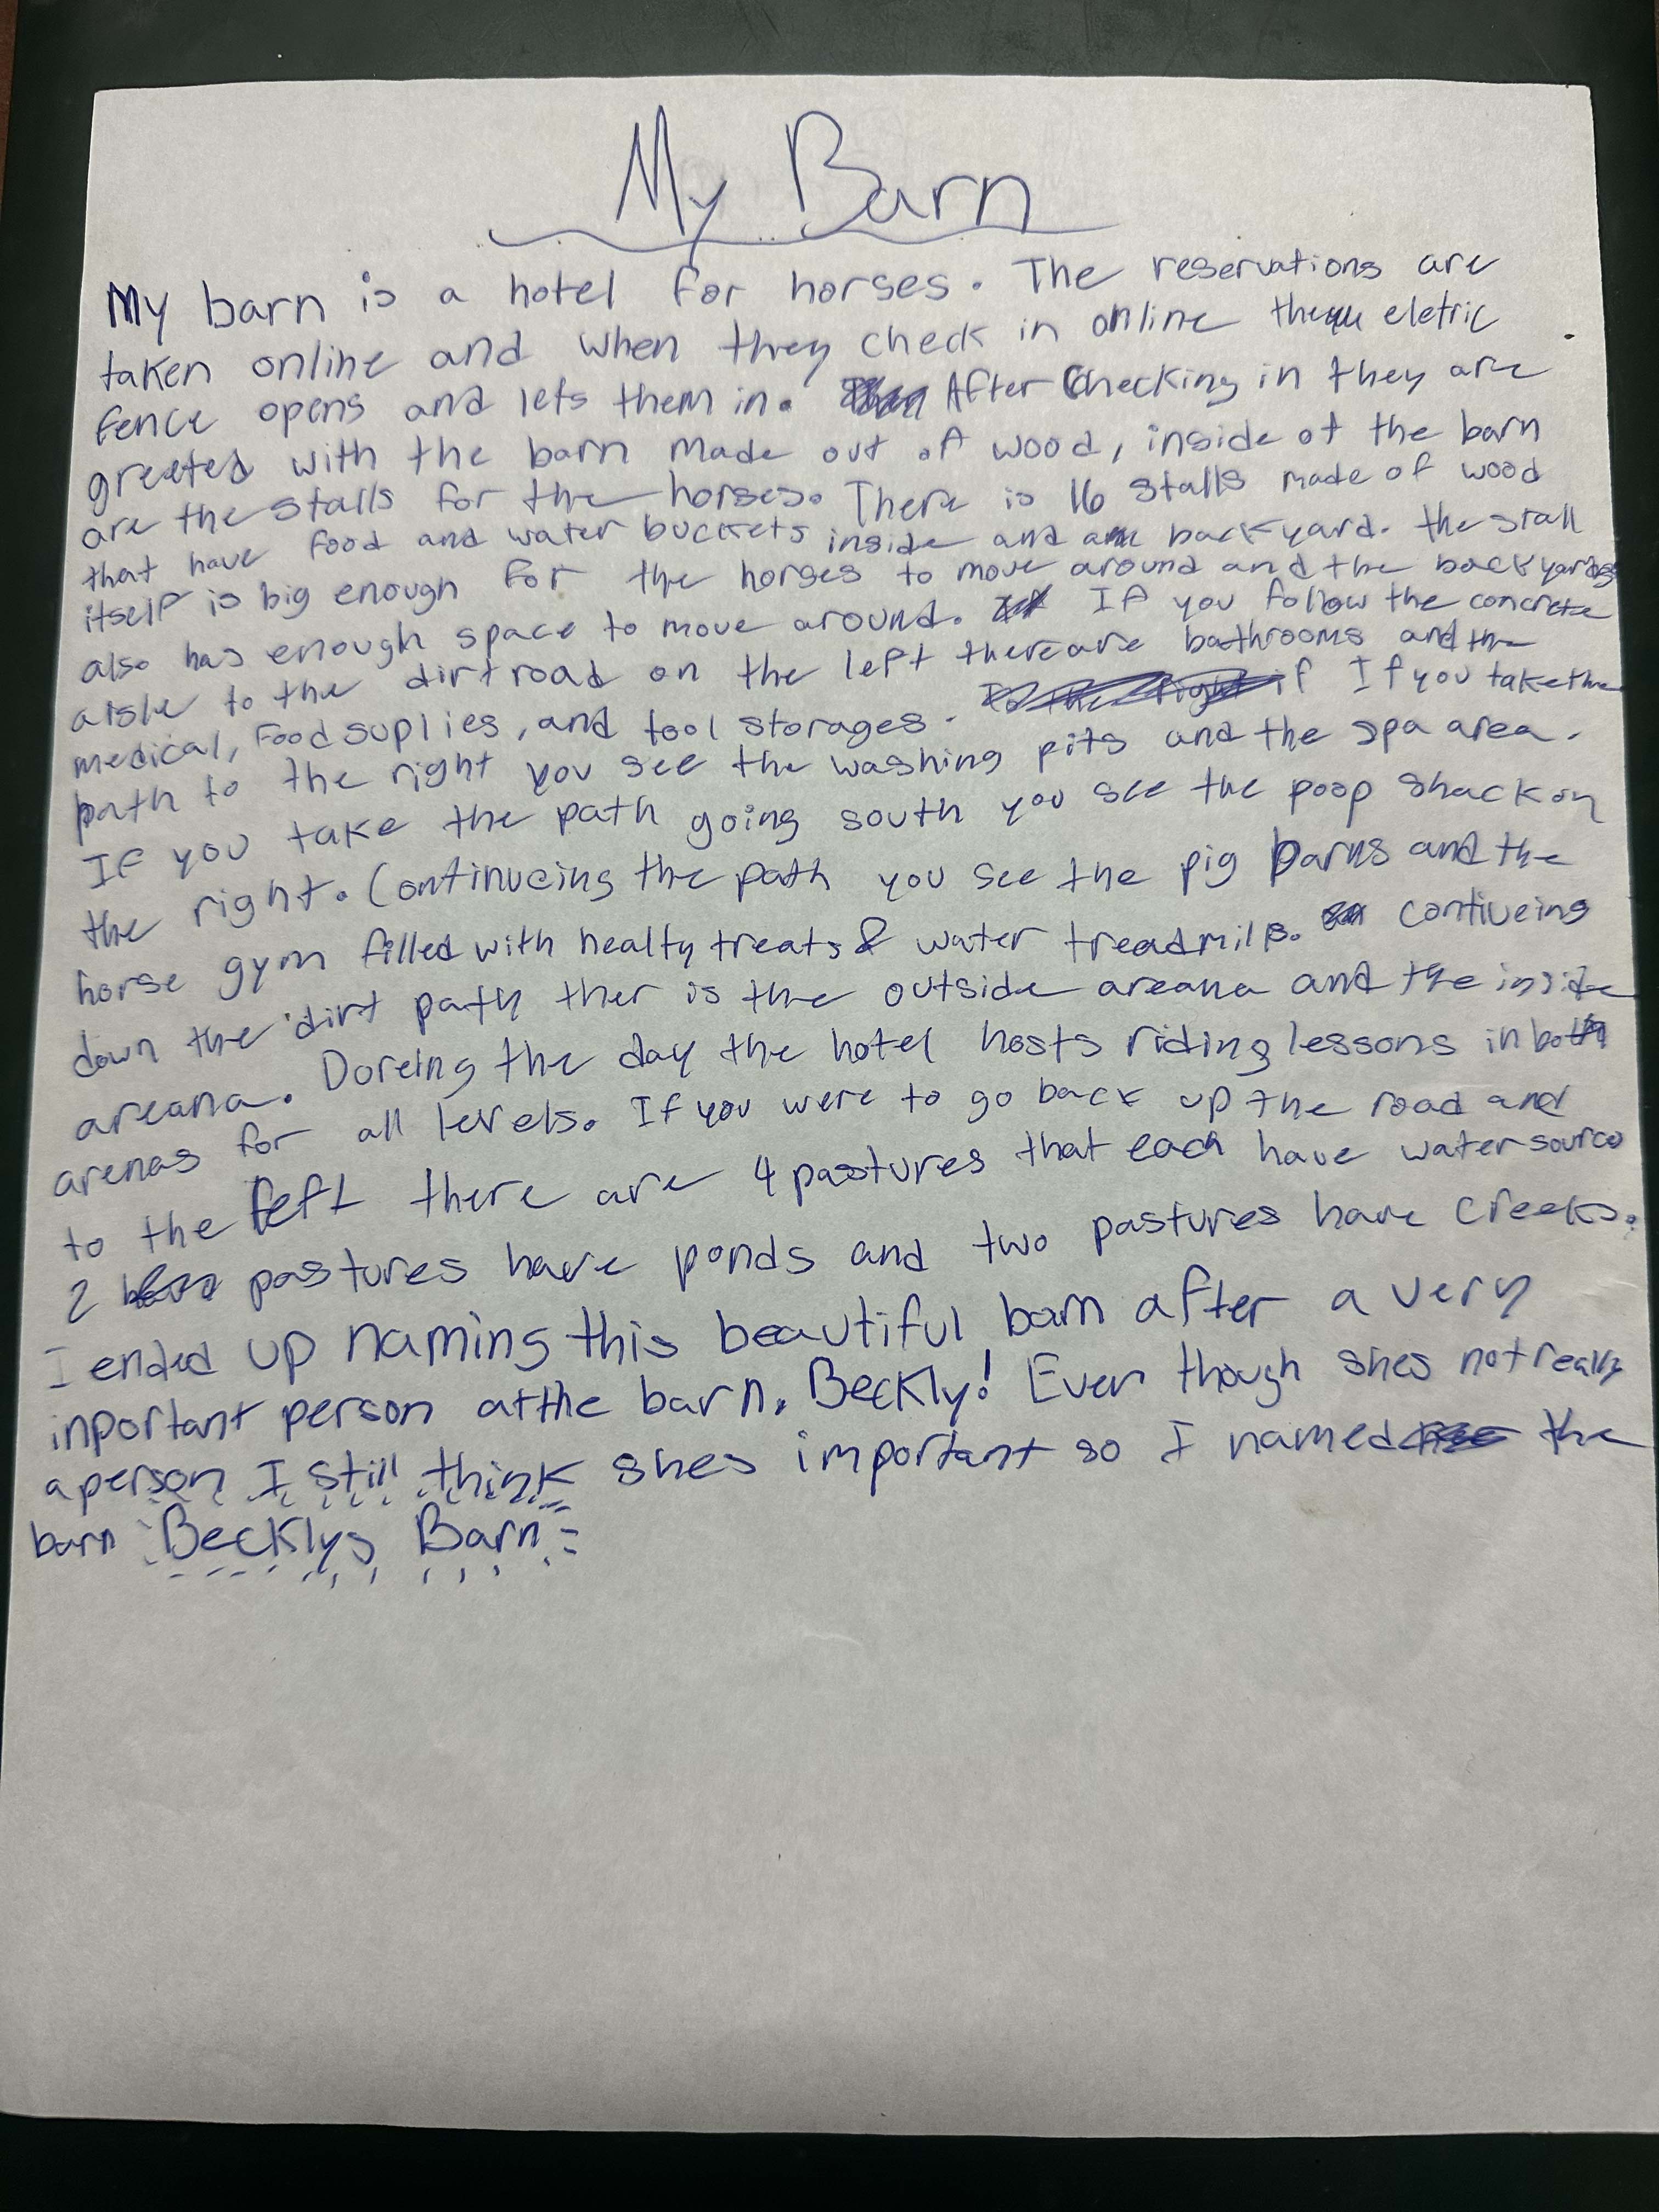 My Barn
My barn is a hotel for horses. The reservations are
taken online and when they check in online the eletric
fence opens and lets them in. After Checking in they are
greated with the barn made out of wood, inside of the barn
are the stalls for the horses. There is 16 stalls made of wood
that have food and water buckets inside and a backyard. the stall
itself is big enough for the horses to move around and the backyards
also has enough space to move around. If you follow the concrete
aisle to the dirt road on the left there are bathrooms and the
medical, food suplies, and tool storages. if If you take the
path to the right you see the washing pits and the spa area.
If you take the path going south you see the poop shack on
the right. Continueing the path you see the pig barns and the
horse gym filled with healty treats & water treadmills. contiueing
down the dirt path ther is the outside areana and the inside
areana. Doreing the day the hotel hosts riding lessons in both
arenas for all levels. If you were to go back up the road and
to the left there are 4 pastures that each have water source
2 pastures have ponds and two pastures have creeks.
I ended up naming this beautiful barn after a very
inportant person at the barn. Beckly! Even though shes not really
a person I still think shes important so I named the
barn Becklys Barn